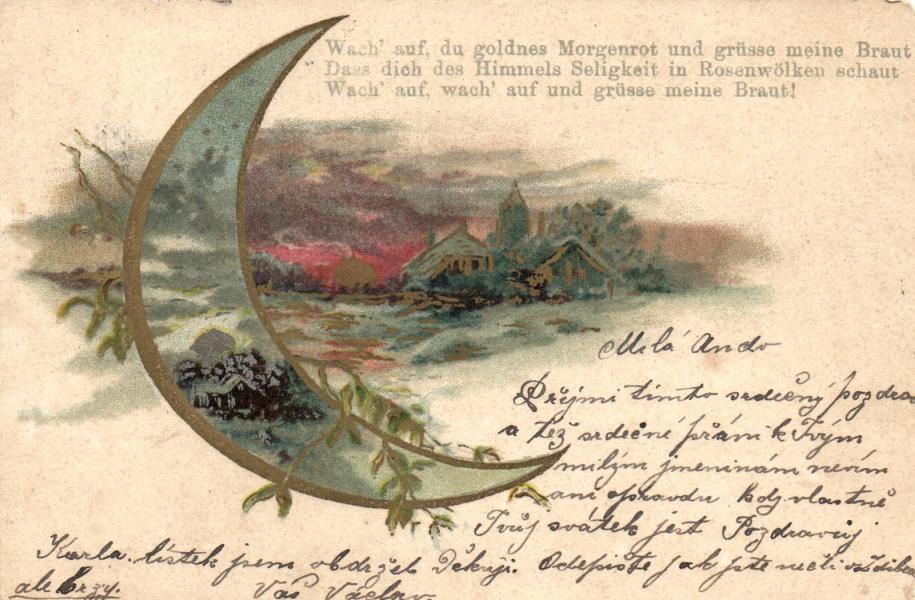 Wach' auf, du goldnes Morgenrot und grüsse meine Braut
Dass dich des Himmels Seligkeit in Rosenwölken schaut
Wach' auf, wach' auf und grüsse meine Braut!
Milá Ando
Přijmi tímto srdečný pozdra
a též srdečné přání k Tvým
milým jmeninám nevím
ani opravdu kdy vlastně
Tvůj svátek jest Pozdravuj
Karla. lístek jsem obdržel Děkuji. Odepište jak jste měli
ale brzy. Váš Václav.